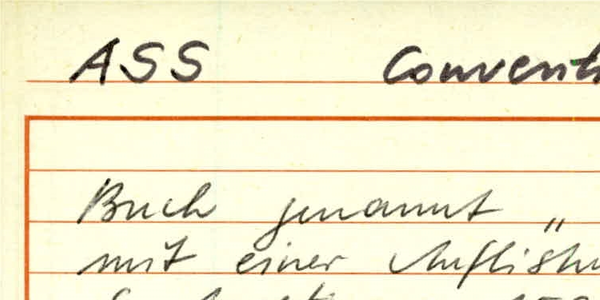 ASS Convent
Buch genannt „
mit einer Auflist